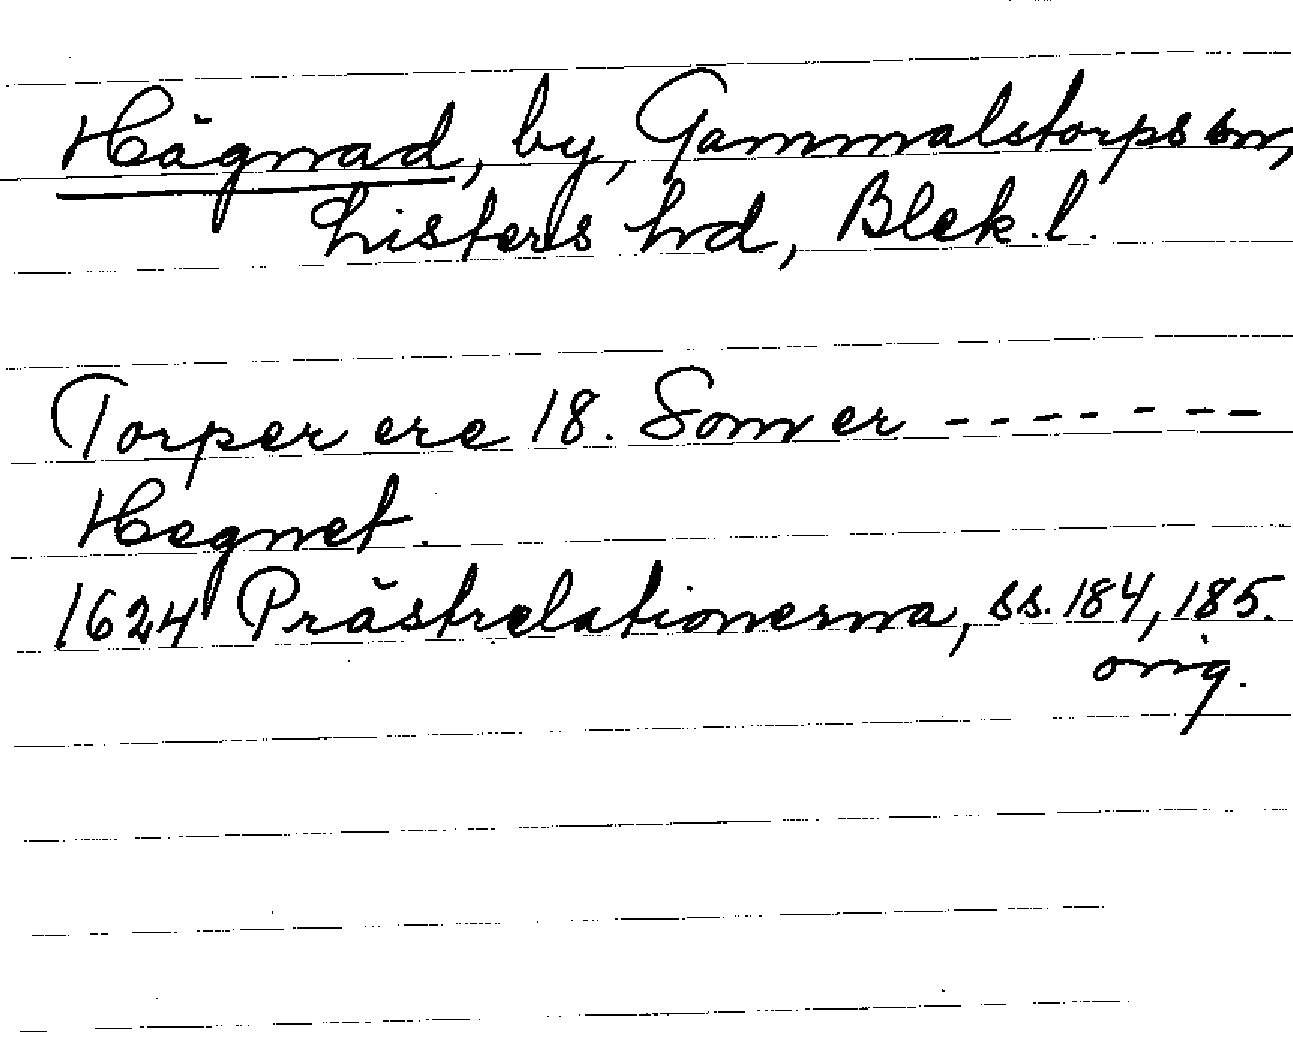 Hägnad, by, Gammalstorps sn,
Listers hd, Blek. l.
Torper ere 18. Som er - - - - - - -
Hegnet.
1624 Prästrelationerna, ss. 184, 185.
orig.